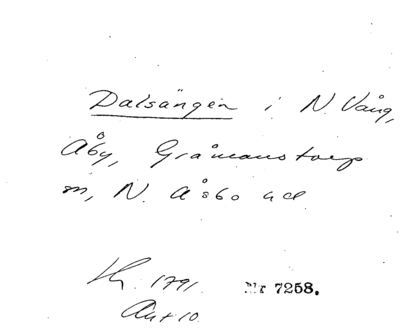 Dalsängen i N. Vång,
Åby, Gråmanstorp
sn, N. Åsbo hd
1791. Nr 7258.
Akt 10.